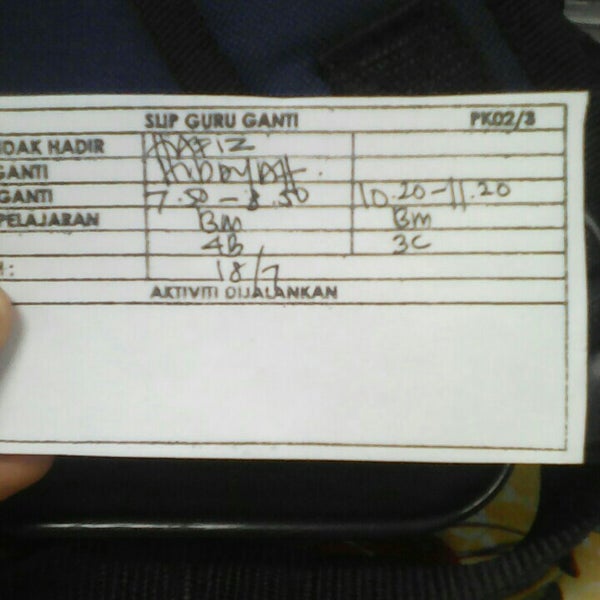 SLIP GURU GANTI PK02/3
DAK HADIR HAFIZ
GANTI
GANTI 7.50 - 8.50 10.20 - 11.20
PELAJARAN BM BM
4B 3C
: 18/7
AKTIVITI DIJALANKAN